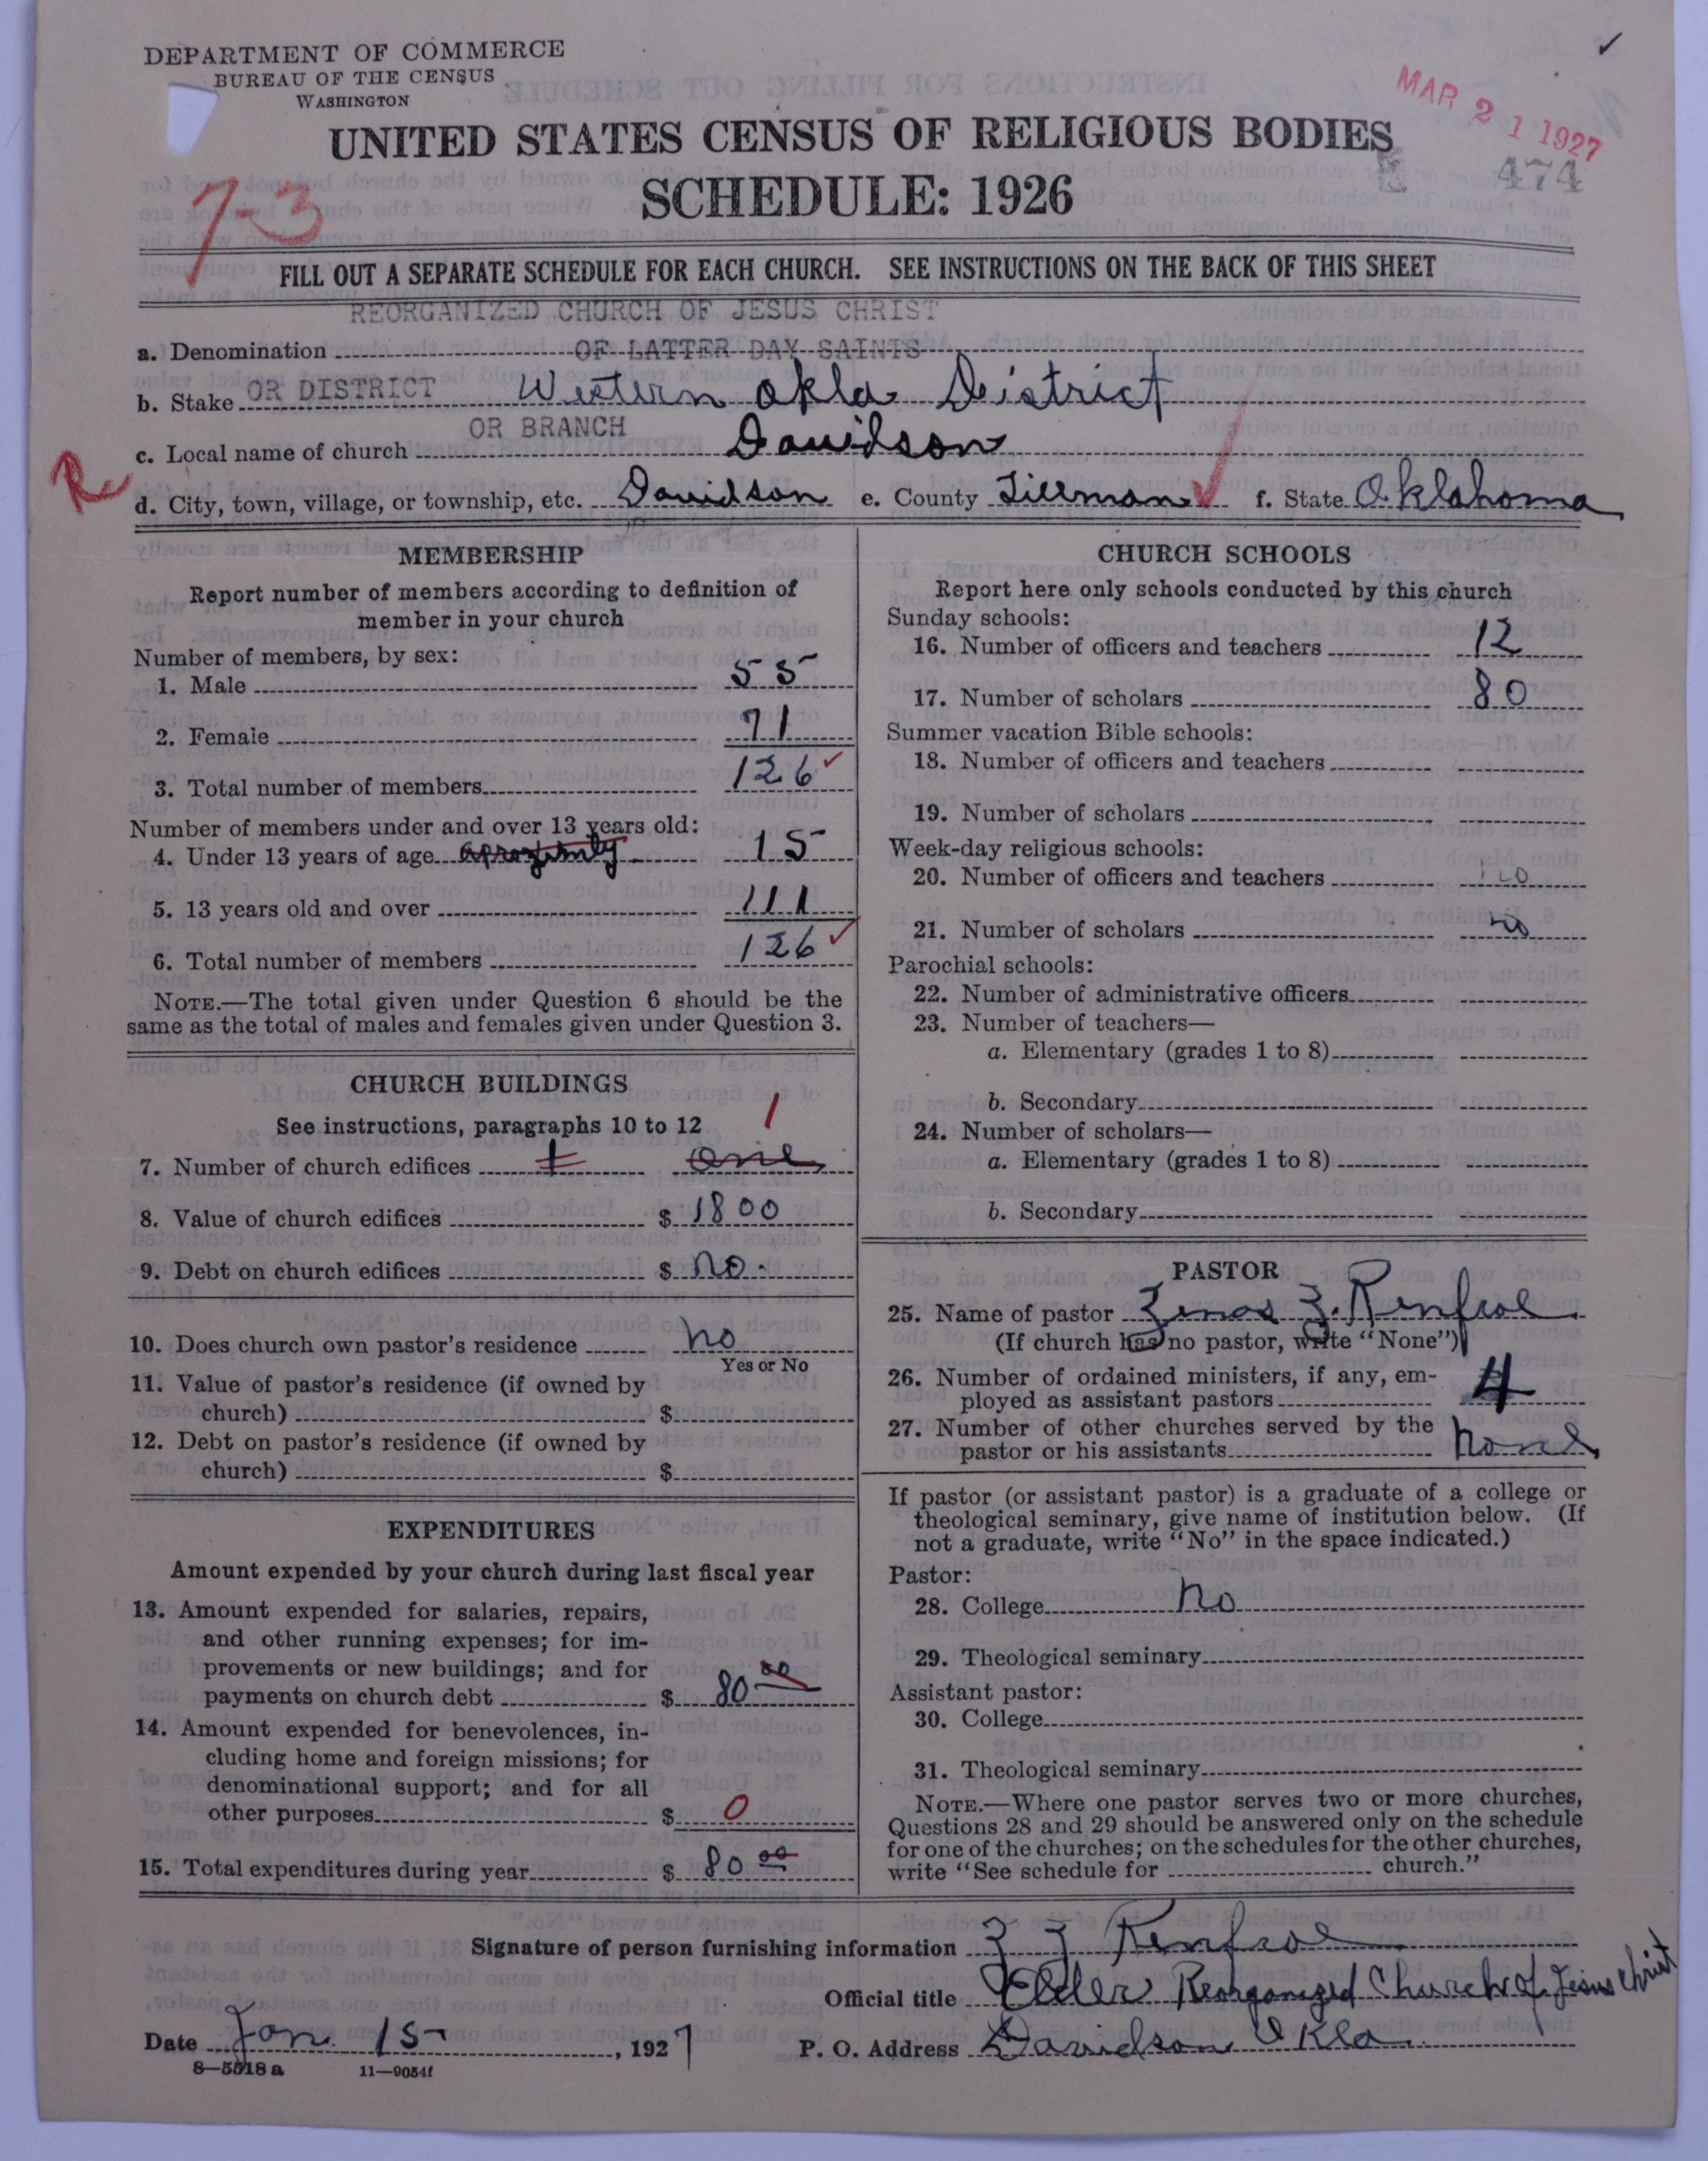 DEPARTMENT OF COMMERCE
BUREAU OF THE CENSUS
WASHINGTON
MAR 21 1927
UNITED STATES CENSUS OF RELIGIOUS BODIES
474
SCHEDULE: 1926
73
FILL OUT A SEPARATE SCHEDULE FOR EACH CHURCH. SEE INSTRUCTIONS ON THE BACK OF THIS SHEET
REORGANIZED CHURCH OF JESUS CHRIST
a. Denomination OF LATTER DAY SAINTS
b. Stake OR DISTRICT Western Okla District
OR BRANCH
c. Local name of church Davidson
R
d. City, town, village, or township, etc. Davidson e. County Tillman f. State Oklahoma
MEMBERSHIP
Report number of members according to definition of
member in your church
Number of members, by sex:
1. Male 55
2. Female 71
3. Total number of members 126
Number of members under and over 13 years old:
4. Under 13 years of age 15
5. 13 years old and over 111
6. Total number of members 126
NOTE.—The total given under Question 6 should be the
same as the total of males and females given under Question 3.
CHURCH BUILDINGS
See instructions, paragraphs 10 to 12 1
7. Number of church edifices 1 one
8. Value of church edifices $ 1800
9. Debt on church edifices $ no.
10. Does church own pastor's residence no
Yes or No
11. Value of pastor's residence (if owned by
church) $
12. Debt on pastor's residence (if owned by
church) $
EXPENDITURES
Amount expended by your church during last fiscal year
13. Amount expended for salaries, repairs,
and other running expenses; for im-
provements or new buildings; and for
payments on church debt $ 80 00
14. Amount expended for benevolences, in-
cluding home and foreign missions; for
denominational support; and for all
other purposes $ 0
15. Total expenditures during year $ 80 00
CHURCH SCHOOLS
Report here only schools conducted by this church
Sunday schools:
16. Number of officers and teachers 12
17. Number of scholars 80
Summer vacation Bible schools:
18. Number of officers and teachers
19. Number of scholars
Week-day religious schools:
20. Number of officers and teachers
21. Number of scholars
Parochial schools:
22. Number of administrative officers
23. Number of teachers—
a. Elementary (grades 1 to 8)
b. Secondary
24. Number of scholars—
a. Elementary (grades 1 to 8)
b. Secondary
PASTOR
25. Name of pastor Zenos Z. Renfroe
(If church has no pastor, write "None")
26. Number of ordained ministers, if any, em-
ployed as assistant pastors 4
27. Number of other churches served by the
pastor or his assistants none
If pastor (or assistant pastor) is a graduate of a college or
theological seminary, give name of institution below. (If
not a graduate, write "No" in the space indicated.)
Pastor:
28. College no
29. Theological seminary
Assistant pastor:
30. College
31. Theological seminary
NOTE.—Where one pastor serves two or more churches,
Questions 28 and 29 should be answered only on the schedule
for one of the churches; on the schedules for the other churches,
write "See schedule for church."
Signature of person furnishing information Z Z Renfroe
Official title Elder Reorganized Church of Jesus Christ
Date Jan 15 , 1927 P. O. Address Davidson Okla
8—5518 a 11—9054f